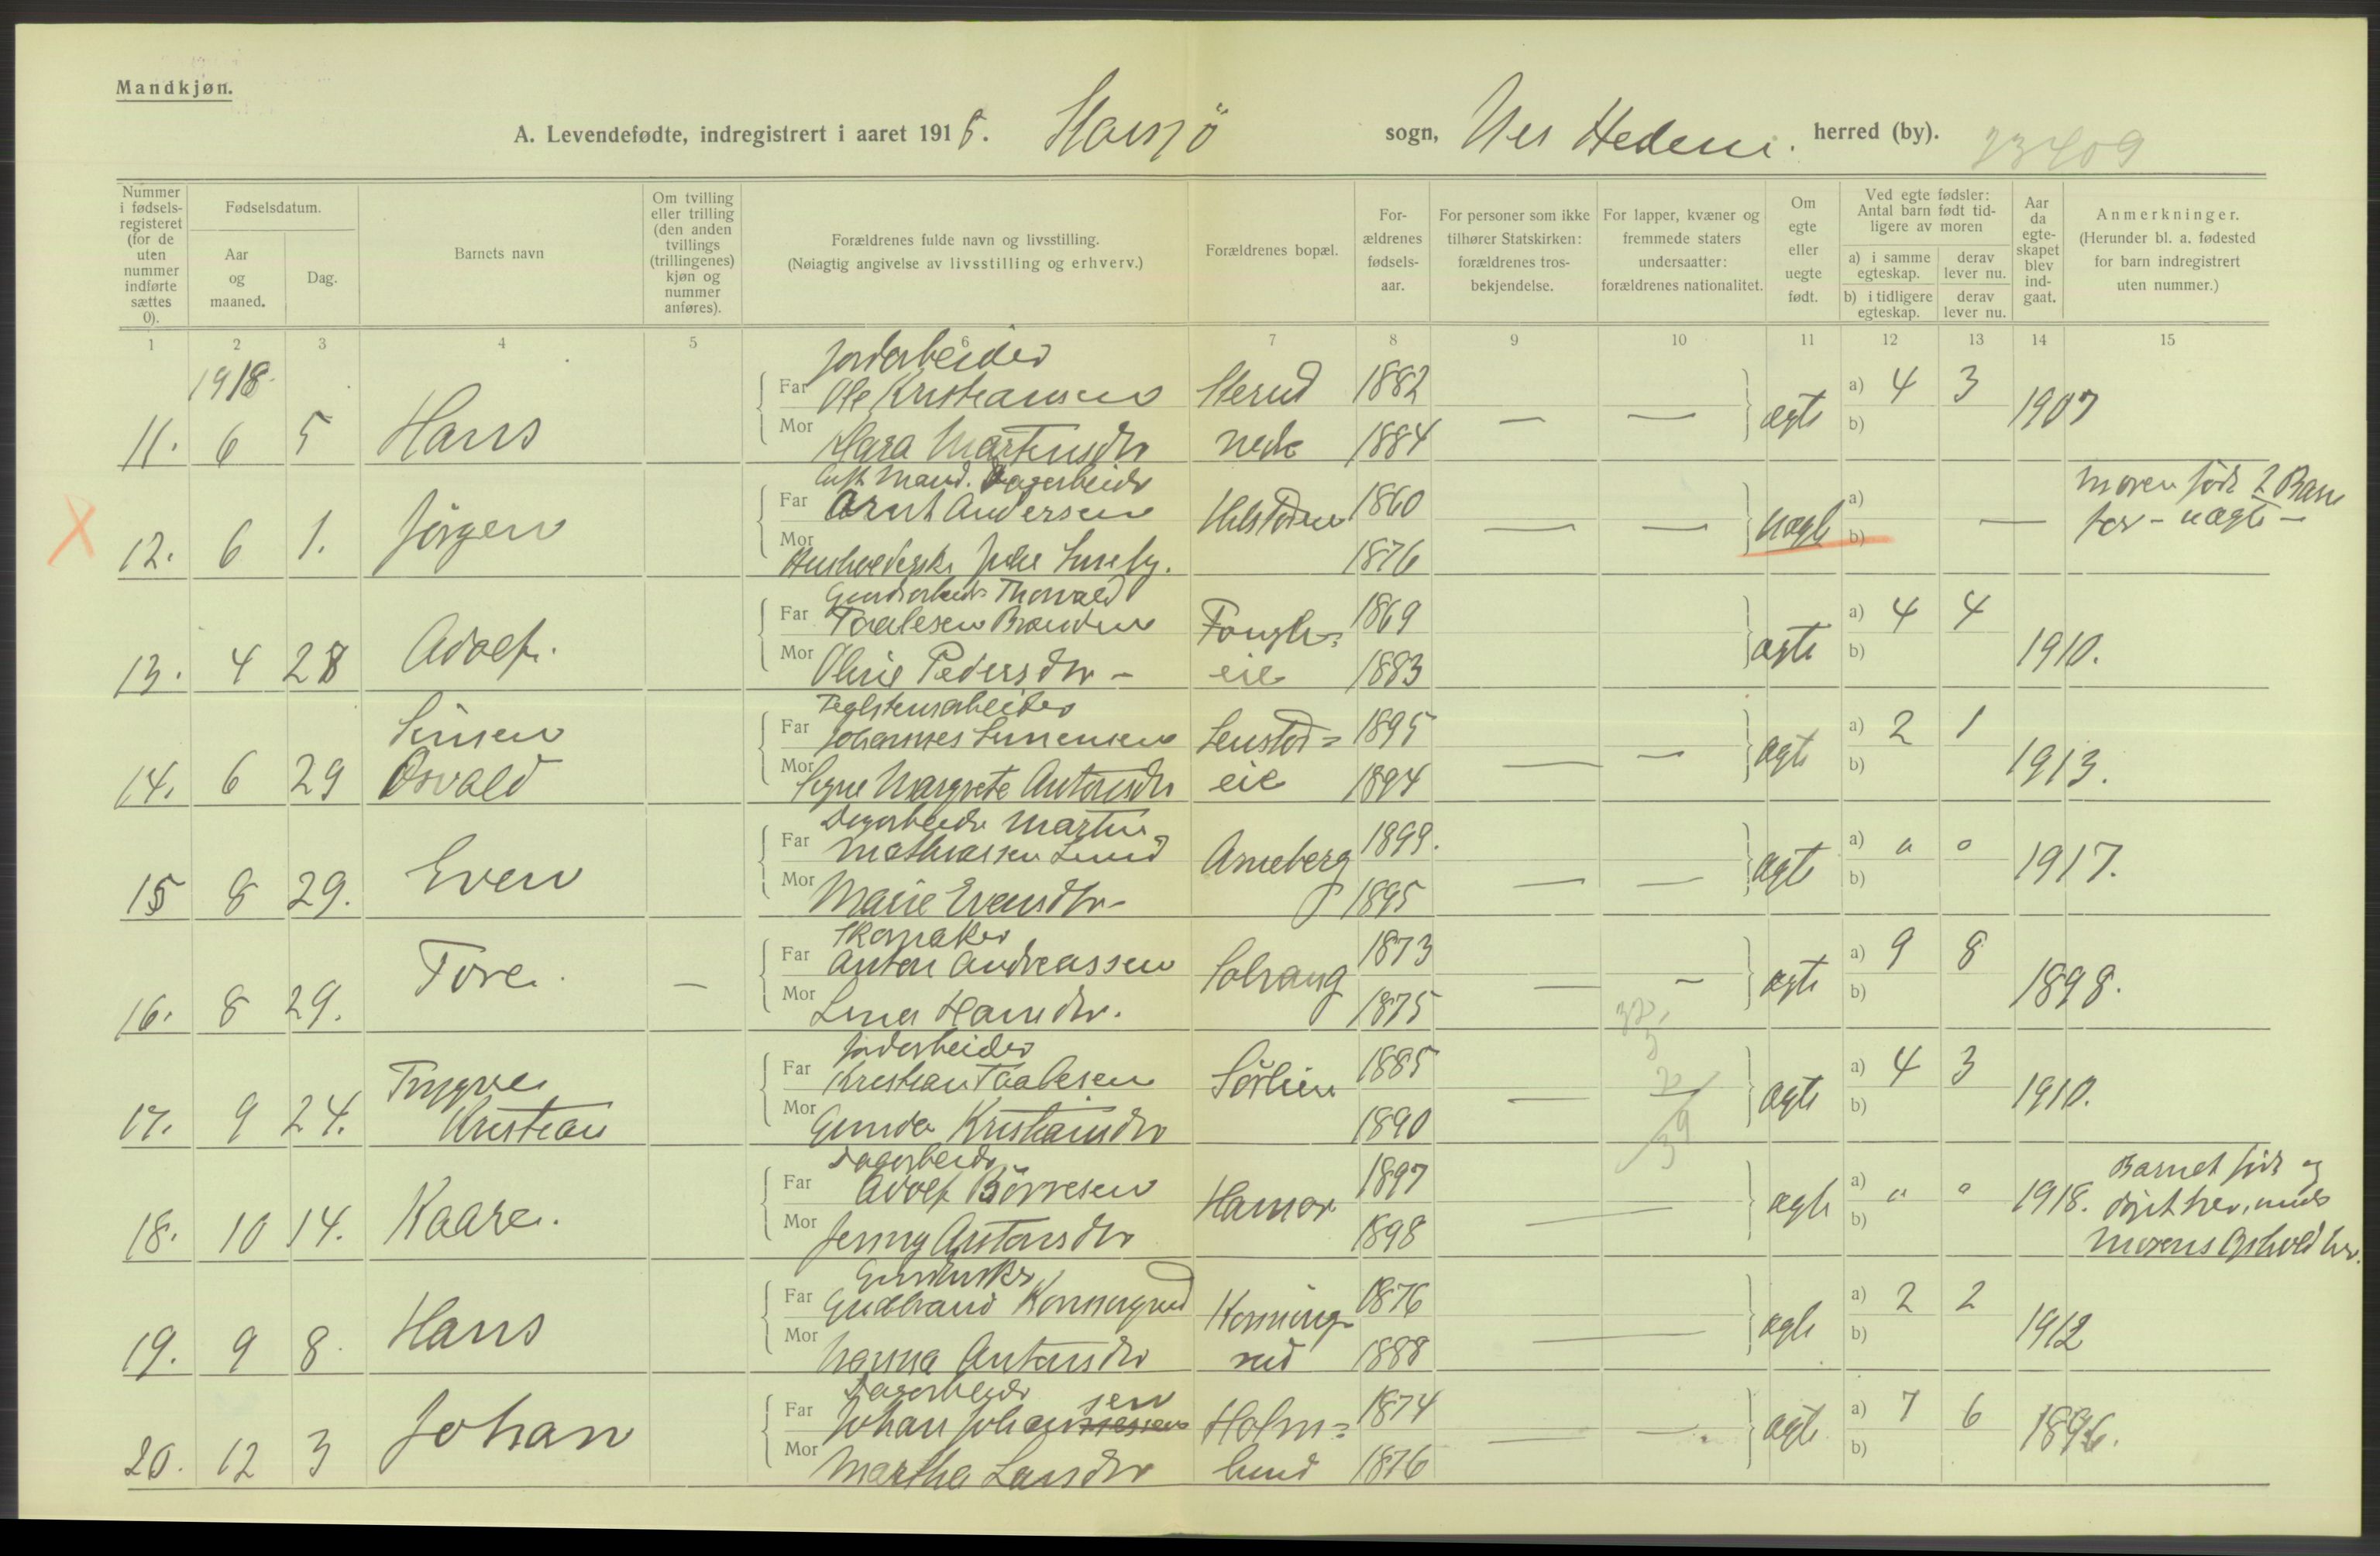 Mandkjøn.
A. Levendefødte, indregistrert i aaret 1918. sogn, herred (by).
Nummer i fødsels-registeret (for de uten nummer indførte sættes 0).
Fødselsdatum.
Aar og maaned.
Dag.
Barnets navn
Om tvilling eller trilling (den anden tvillings (trillingenes) kjøn og nummer anføres).
Forældrenes fulde navn og livsstilling.
(Nøiagtig angivelse av livsstilling og erhverv.)
Forældrenes bopæl.
For-ældrenes fødsels-aar.
For personer som ikke tilhører Statskirken: forældrenes tros-bekjendelse.
For lapper, kvæner og fremmede staters undersaatter: forældrenes nationalitet.
Om egte eller uegte født.
Ved egte fødsler: Antal barn født tid-ligere av moren
a) i samme egteskap. derav lever nu.
b) i tidligere egteskap. derav lever nu.
Aar da egte-skapet blev ind-gaat.
Anmerkninger.
(Herunder bl. a. fødested for barn indregistrert uten nummer.)
1 2 3 4 5 6 7 8 9 10 11 12 13 14 15
1918.
Jordarbeider
Far Ole Kristiansen 1882 a) 4 3
11. 6 5 Hans — — ægte b) 1907
Mor Klara Martinsdtr 1884
Dagarbeider
Far Arnt Andersen 1860 a) Moren født 2 Barn
12. 6 1. Jörgen — — uægte b) — før - uægte -
Mor 1876
Thorvald
Far Braenden 1869 a) 4 4
13. 4 28 Adolf. ægte b) 1910.
Mor Oline Pedersdtr - eie 1883
Teglstensarbeider
Simen Far Johannes Simensen 1895 a) 2 1
14. 6 29 Osvald — — ægte b) 1913.
Mor Signe Margrete Antonsdtr eie 1894
Dagarbeider Martin
Far Mathiassen Lund 1899. a) " "
15 8 29. Even Arneberg — — ægte b) 1917.
Mor Marie Evensdtr - 1895
Skomaker
Far Anton Andreassen 1873 a) 9 8
16. 8 29. Tore. — Solvang — — ægte b) 1898.
Mor Lina Hansdtr. 1875
Jordarbeider
Trygve Far Kristian Taalesen 1885 a) 4 3
17. 9 24. Kristian Sørlien — ægte b) 1910.
Mor Gunda Kristiansdtr 1890
Dagarbeider
Far Adolf Børresen 1897 a) " " Barnet født og
18. 10 14. Kaare. Hamar — ægte b) 1918. døpt her, under
Mor Jenny Antonsdtr 1898 Morens Ophold her.
Gaardbruker
Far Gudbrand Konningrud Konning- 1876 a) 2 2
19. 9 8. Hans — ægte b) 1912
Mor Antonsdtr rud 1888
Dagarbeider
Far Johan Johansen Holm= 1874 a) 7 6
20. 12 3 Johan — — ægte b) 1896.
Mor Martha Larsdtr lund 1876